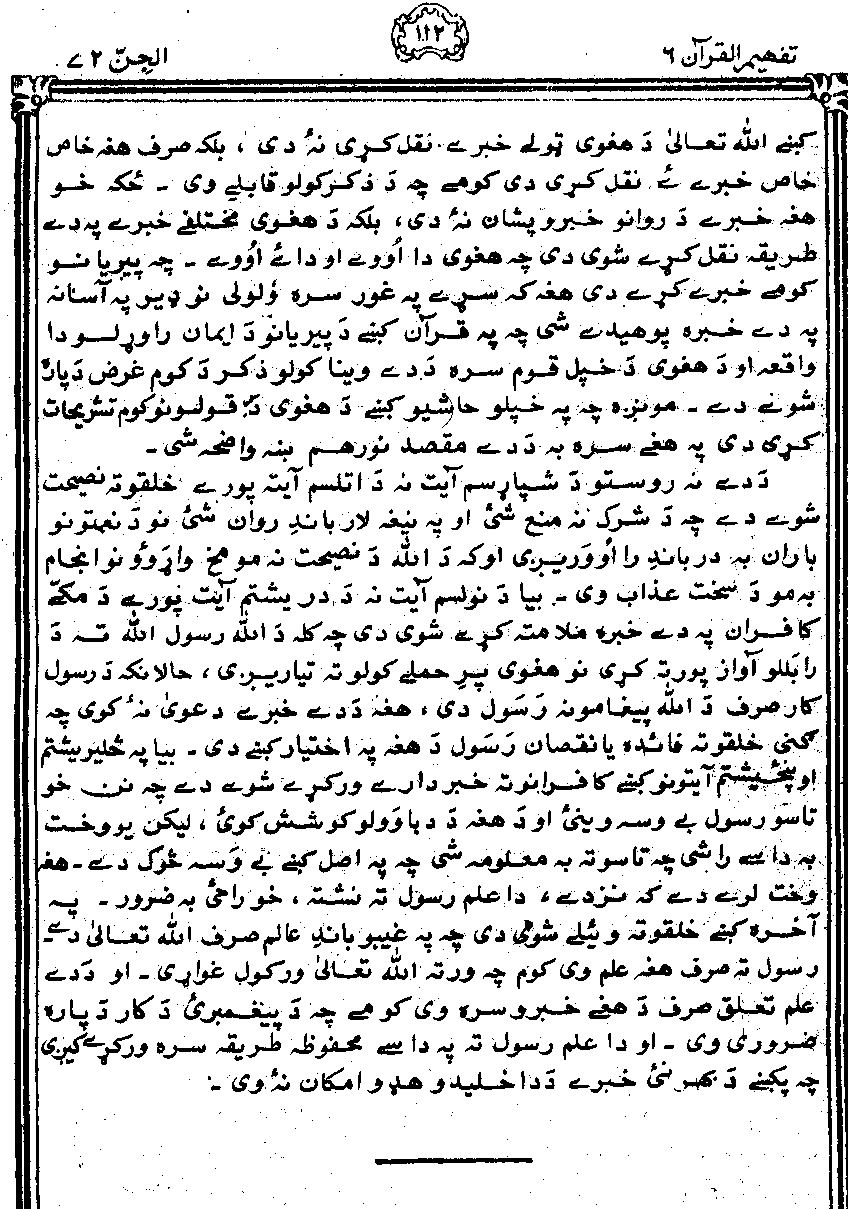 ۱۱۲
تفهيم القرآن ۶
الجنّ ۷۲
کښے الله تعالىٰ دَ هغوی ټولے خبرے نقل کړی نهٔ دی ، بلکه صرف هغه خاص
خاص خبرے ئے نقل کړی دی کومے چه دَ ذکر کولو قابلے وی ۔ ځکه خو
هغه خبرے دَ روانو خبرو پشان نهٔ دی، بلکه دَ هغوی مختلفے خبرے په دے
طریقه نقل کړے شوی دی چه هغوی دا اُووے او دا ئے اُووے ۔ چه پیریانو
کومے خبرے کړے دی هغه که سړے په غور سره وُلولی نو ډیر په آسانه
په دے خبره پوهیدے شی چه په قرآن کښے دَ پیریانو دَ ایمان راوړلو دا
واقعه او دَ هغوی دَ خپل قوم سره دَ دے وینا کولو ذکر دَ کوم غرض دَ پارهٔ
شوے دے ۔ مونږه چه په خپلو حاشیو کښے دَ هغوی دَ قولونو کوم تشریحات
کړی دی په هغے سره به دَ دے مقصد نور هم ښه واضحه شی ۔
دَ دے نه روستو دَ شپاړسم آیت نه دَ اتلسم آیته پورے خلقو ته نصیحت
شوے دے چه دَ شرک نه منع شیٔ او په نیغه لار باندِ روان شیٔ نو دَ نعمتونو
باران به درباندِ را اُووریږی او که دَ الله دَ نصیحت نه مو مخ واړوؤ نو انجام
به مو دَ سخت عذاب وی ۔ بیا دَ نولسم آیت نه دَ دریشتم آیت پورے دَ مکّے
کافران په دے خبره ملامته کړے شوی دی چه کله دَ الله رسول الله ته دَ
رابللو آواز پورته کړی نو هغوی پرِ حملے کولو ته تیاریږی ، حالانکه دَ رسول
کار صرف دَ الله پیغامونه رَسَول دی ، هغه دَ دے خبرے دعویٰ نهٔ کوی چه
ګنی خلقو ته فائده یا نقصان رَسَول دَ هغه په اختیار کښے دی ۔ بیا په څلیریشتم
او پنځیشتم آیتونو کښے کافرانو ته خبردارے ورکړے شوے دے چه نن خو
تاسو رسول بے وسه وینیٔ او دَ هغه دَ دباوَولو کوشش کویٔ ، لیکن یو وخت
به داسے راشی چه تاسو ته به معلومه شی چه په اصل کښے بے وَسه څوک دے ۔ هغه
وخت لرے دے که نزدے ، دا علم رسول ته نشته ، خو راځی به ضرور ۔ په
آخره کښے خلقو ته وئیلے شوی دی چه په غیبو باندِ عالم صرف الله تعالىٰ دے۔
رسول ته صرف هغه علم وی کوم چه ورته الله تعالىٰ ورکول غواړی ۔ او دَ دے
علم تعلق صرف دَ هغے خبرو سره وی کومے چه دَ پیغمبریٔ دَ کار دَ پاره
ضروری وی ۔ او دا علم رسول ته په داسے محفوظه طریقه سره ورکړے کیږی
چه پکښے دَ بهرنیٔ خبرے دَ داخلیدو هډو امکان نهٔ وی ۔